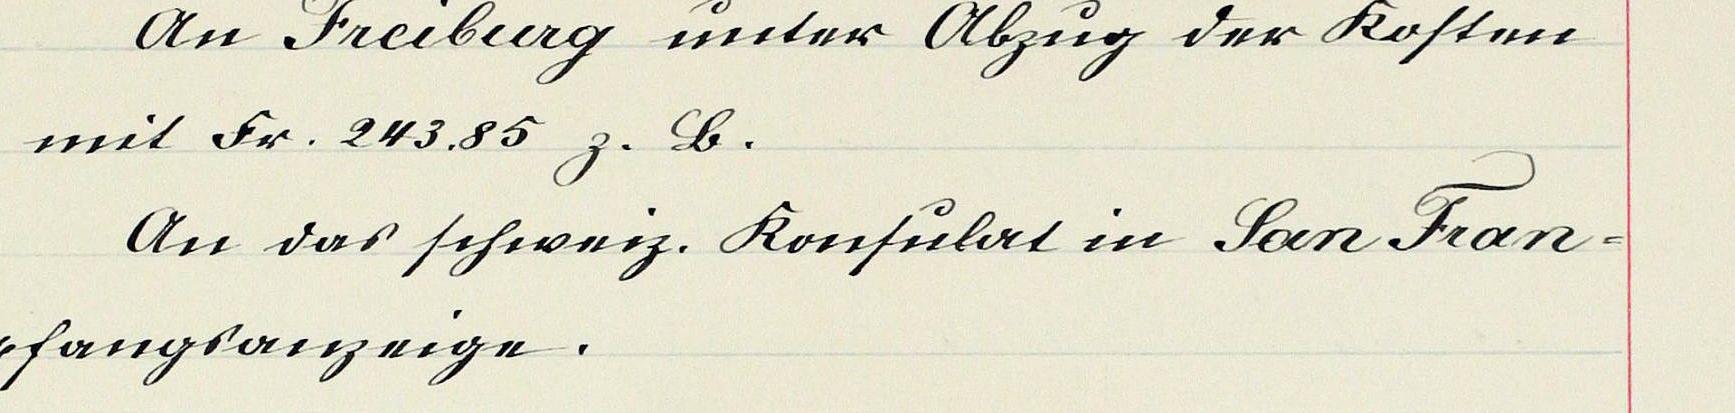 An Freiburg unter Abzug der Kosten
mit Fr. 243.85 z. B.
An das schweiz. Konsulat in San Fran=
pfangsanzeige.